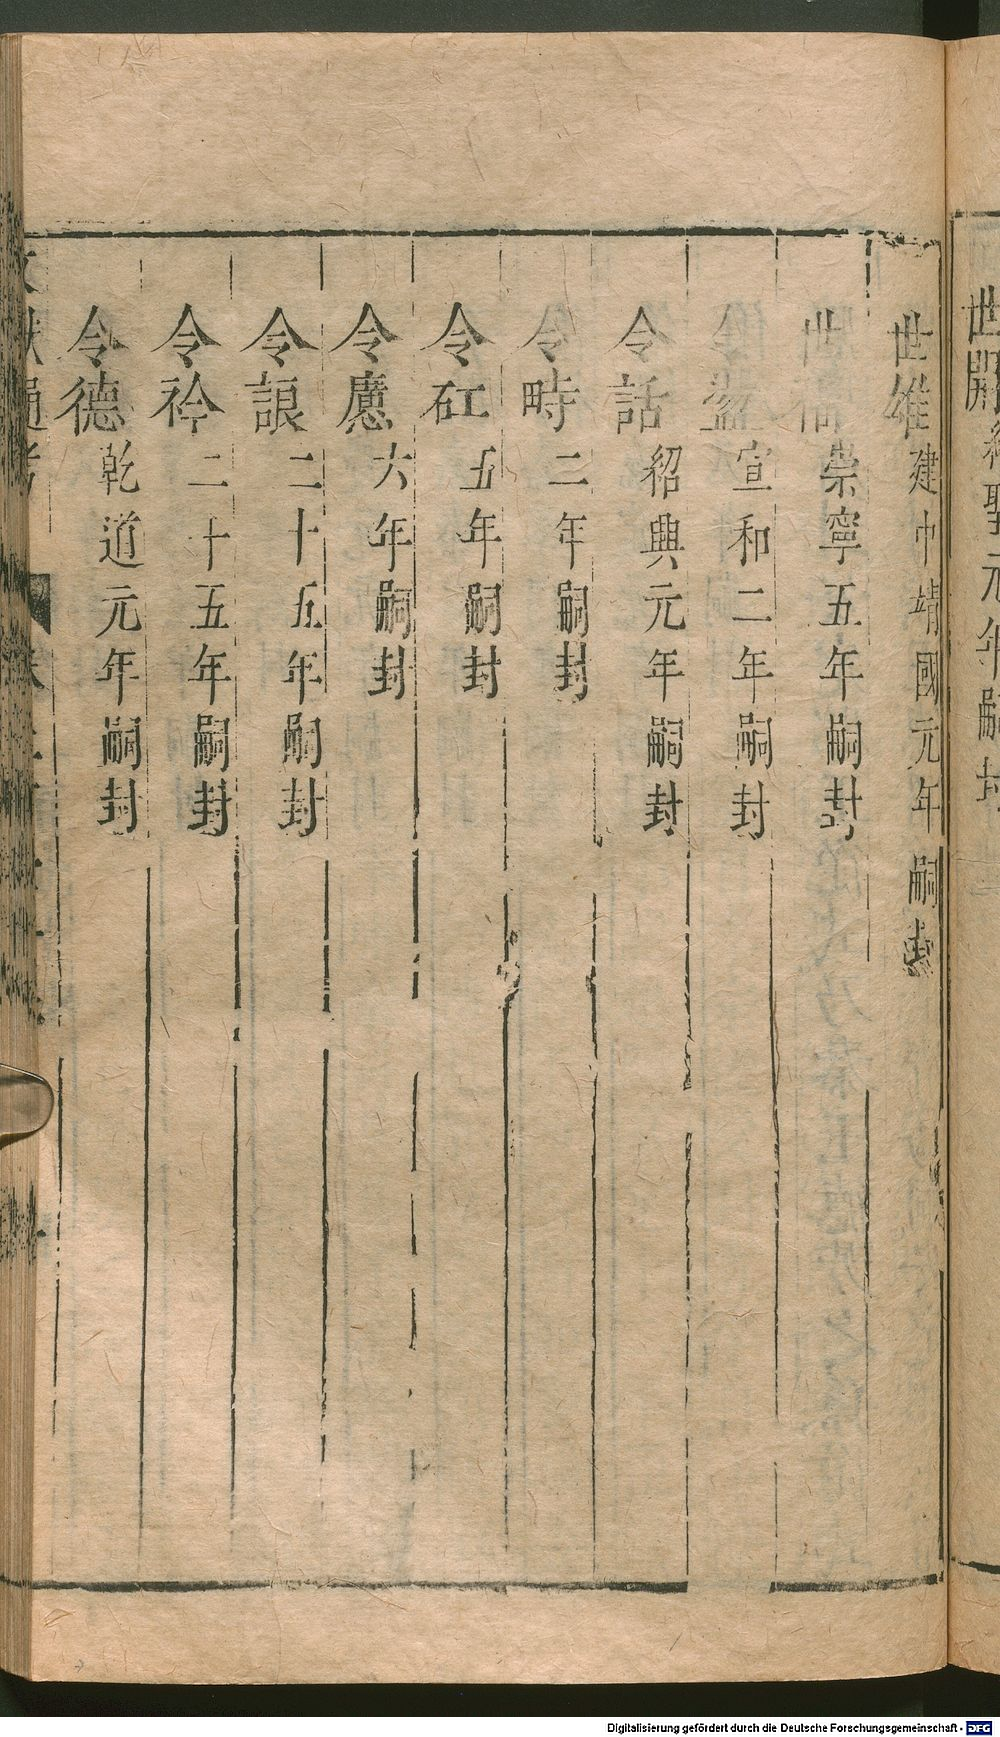 世雄建中靖國元年嗣封
世 崇寧五年嗣封
令 宣和二年嗣封
令話紹興元年嗣封
令時二年嗣封
令矼五年嗣封
令譍六年嗣封
令詪二十五年嗣封
令衿二十五年嗣封
令德乾道元年嗣封
紹聖元年嗣封
文獻通考
Digitalisierung gefördert durch die Deutsche Forschungsgemeinschaft - DFG